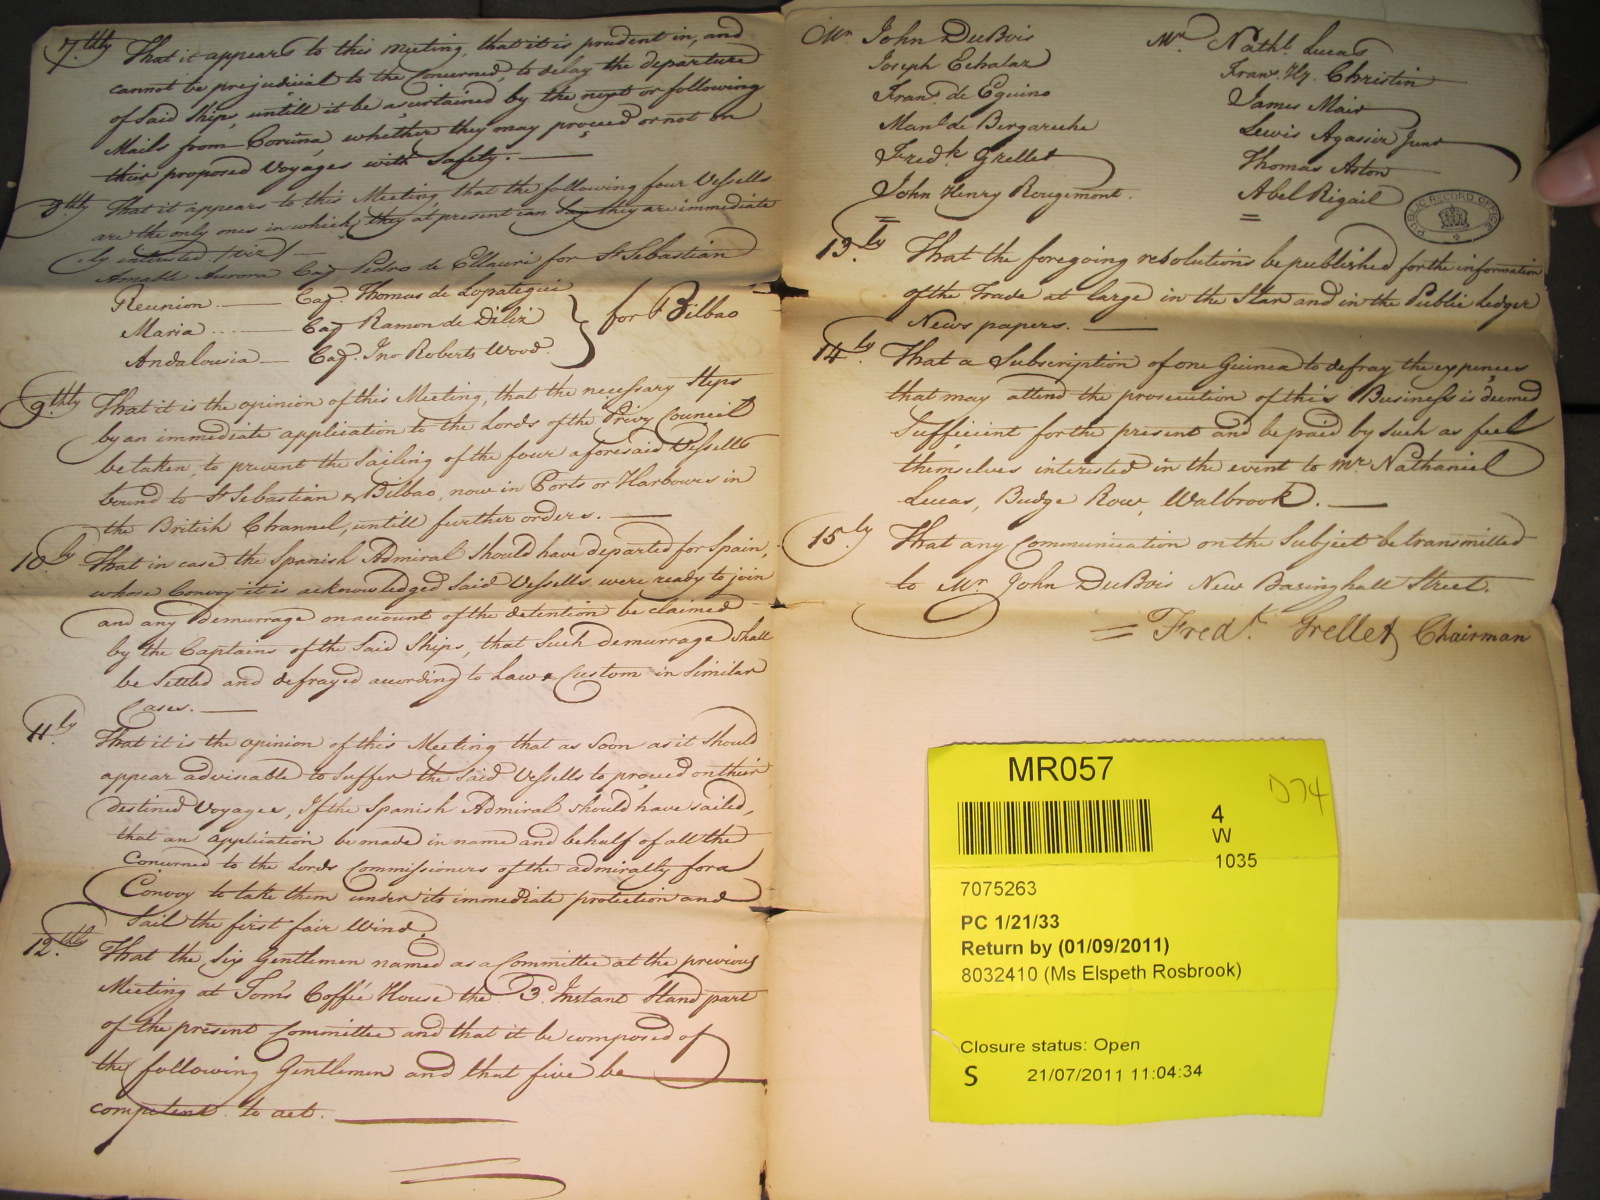 7.thly That it appears to this Meeting, that it is prudent in, and
cannot be prejudicial to the Concerned, to delay the departure
of Said Ships, untill it be ascertained by the next or following
Mails from Coruña, whether they may proceed or not on
their proposed Voyages with Safety. —
8thly That it appears to this Meeting, that the following four Vessells
are the only ones in which, they at present can say they are immediate
ly interested (viz)
Amable Aurora Cap Pedro de Ellauri for St Sebastian
Reunion — Cap. Thomas de Lopategui
Maria — Cap Ramon de Diliz } for Bilbao
Andalousia — Cap. Jno Roberts Wood.
9.thly That it is the opinion of this Meeting, that the necessary Steps
by an immediate application to the Lords of the Privy Council
be taken, to prevent the Sailing of the four aforesaid Vessells
bound to St Sebastian & Bilbao, now in Ports or Harbours in
the British Channel, untill further orders. —
10.ly That in case the Spanish Admiral should have departed for Spain,
whose Convoy it is acknowledged Said Vessells were ready to join
and any demurrage on account of the detention be claimed
by the Captains of the Said Ships, that Such demurrage Shall
be Settled and defrayed according to Law & Custom in Similar
Cases. —
11.ly That it is the opinion of this Meeting that as Soon as it Should
appear adviseable to Suffer the Said Vessells to proceed on their
destined Voyages, If the Spanish Admiral should have sailed,
that an application be made in name and behalf of all the
Concerned to the Lords Commissioners of the admiralty for a
Convoy to take them under its immediate protection and
Sail the first fair Wind.
12.thly That the Six Gentlemen named as a Committee at the previous
Meeting at Tom's Coffée House the 3d. Instant Stand part
of the present Committee and that it be composed of
the following Gentlemen and that five be
competent to act. —
Mr. John DuBois
Joseph Echalaz
Frans. de Eguino
Manl. de Bergareche
Fredk. Grellet
John Henry Rougemont.
Mr Nathl. Lucas
Frans. Hy. Christin
James Mair
Lewis Agassiz Junr
Thomas Aston
Abel Rigail
PUBLIC RECORD OFFICE
13.ly That the foregoing resolutions be published for the information
of the Trade at large in the Star and in the Public Ledger
News papers. —
14.ly That a Subscription of one Guinea to defray the expences
that may attend the prosecution of this Business is deemed
Sufficient for the present and be paid by Such as feel
themselves interested in the event to Mr Nathaniel
Lucas, Budge Row, Walbrook. —
15.ly That any Communication on the Subject be transmitted
to Mr. John DuBois New Basinghall Street.
= Fredk. Grellet Chairman
MR057
D74
4
W
1035
7075263
PC 1/21/33
Return by (01/09/2011)
8032410 (Ms Elspeth Rosbrook)
Closure status: Open
S 21/07/2011 11:04:34